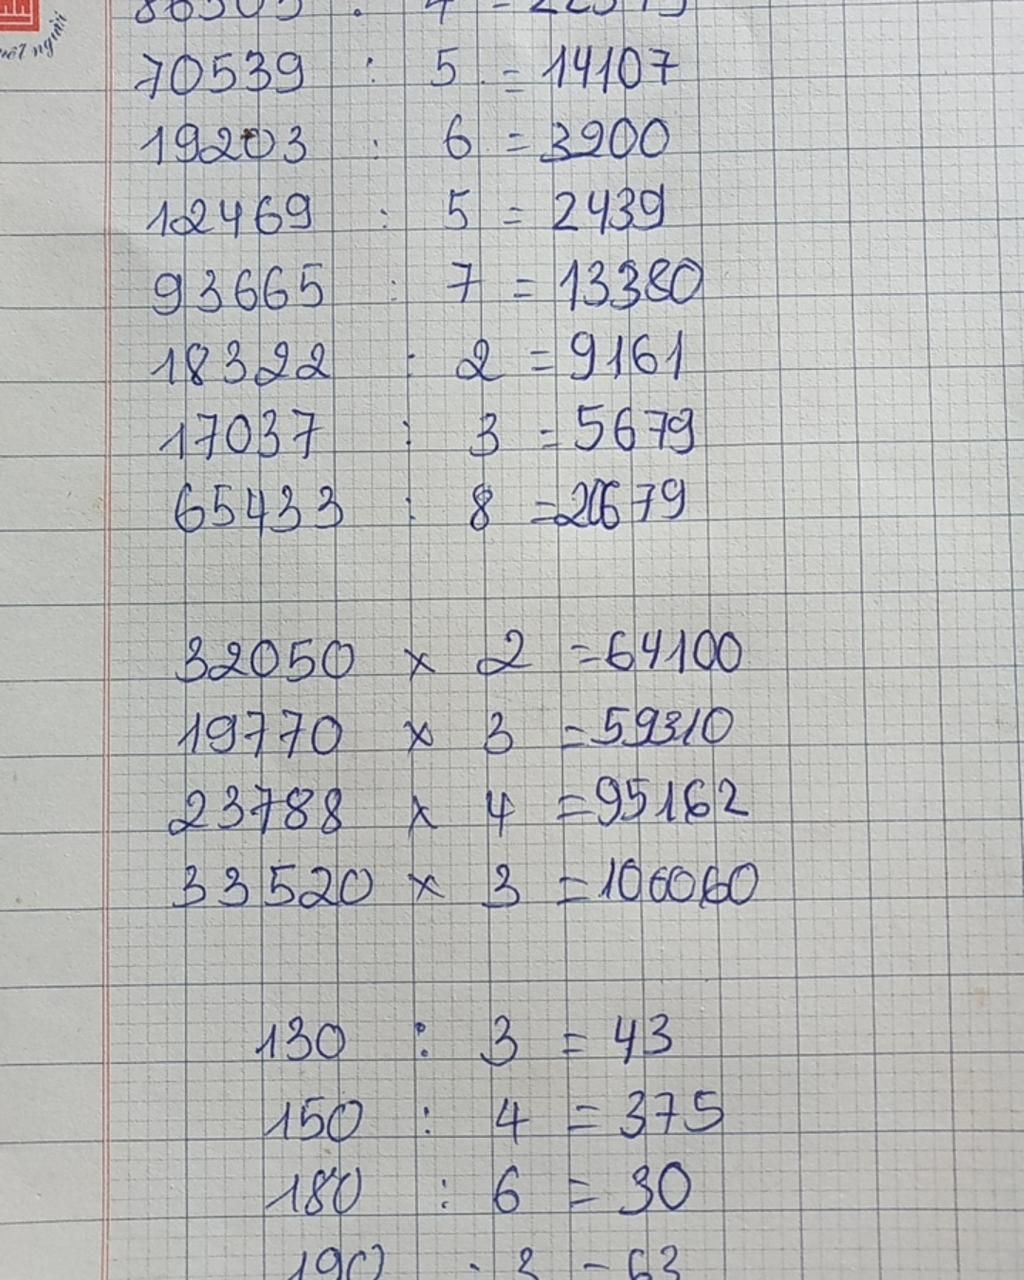 người
70539 : 5 = 14107
19203 : 6 = 3200
12469 : 5 = 2439
93665 : 7 = 13380
18322 : 2 = 9161
17037 : 3 = 5679
65433 : 8 =
32050 x 2 = 64100
19770 x 3 = 59310
23788 x 4 = 95162
33520 x 3 = 106060
130 : 3 = 43
150 : 4 = 375
180 : 6 = 30
190 : 3 = 63